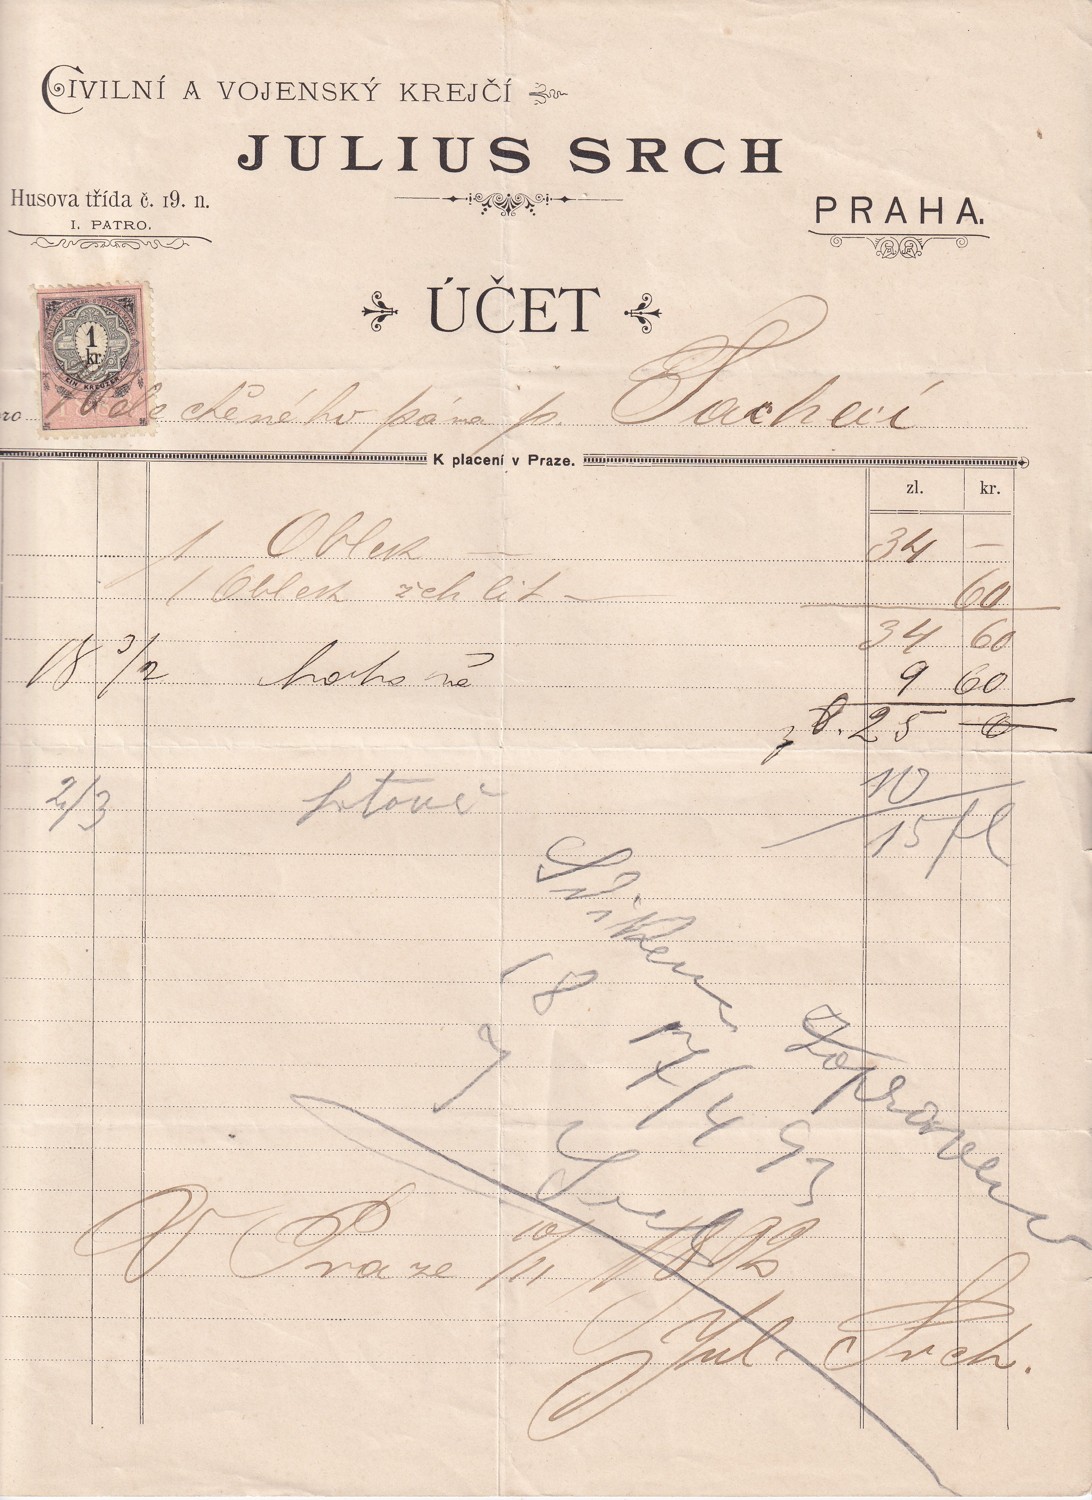 CIVILNÍ A VOJENSKÝ KREJČÍ
JULIUS SRCH
Husova třída č. 19. n.
I. PATRO.
PRAHA.
ÚČET
1
kr.
EIN KREUZER
pána p.
K placení v Praze.
zl. kr.
1 Oblek — 34 —
1 Oblek žehlit — 60
34 60
18 3/2 hotově 9 60
25 0
2/3 hotově 10
15 fl
18
17/4 93
Zapraveno
V Praze 10/11 1892
Jul. Srch.